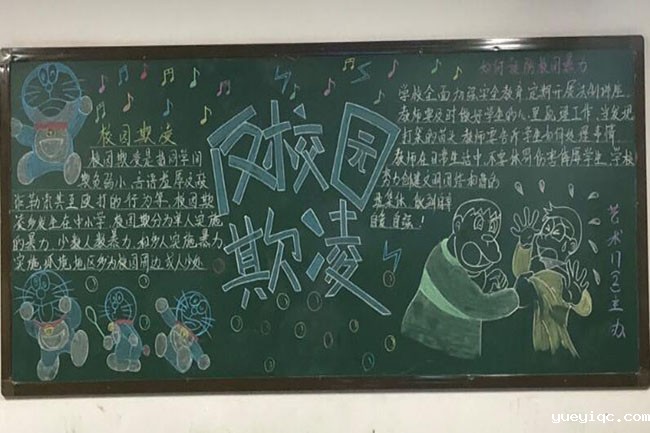 校园欺凌
校园欺凌是指同学间
欺负弱小、言语羞辱及敲
诈勒索甚至殴打的行为等。校园欺
凌多发生在中小学。校园欺凌分为单人实施
的暴力、少数人暴力和多人实施暴力
实施环境地区多为校园周边或人少处
反校园
欺凌
如何预防校园暴力
学校全面加强安全教育定期开展法制讲座
教师要及时做好学生的心里疏理工作,当发现
打架的苗头,教师要告诉学生如何处理事情
教师在日常生活中,不要体罚伤害侮辱学生,学校
努力创建文明团结和谐的
班集体,做到自尊
自爱、自强!
艺术门(2)主办
yueyiqc.com